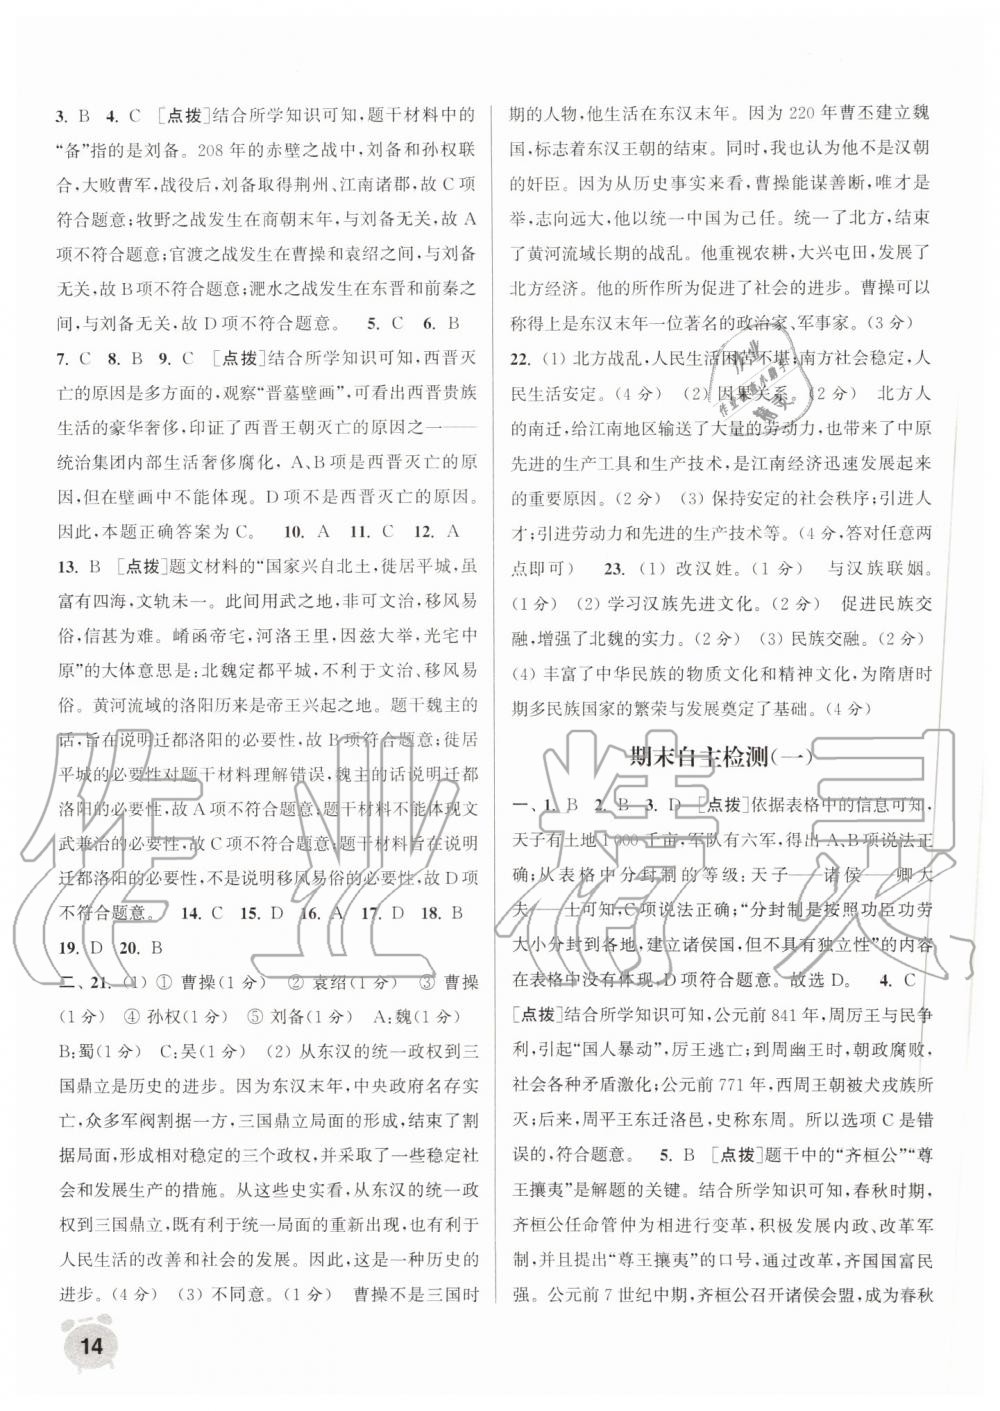 3. B 4. C [点拨]结合所学知识可知,题干材料中的
“备”指的是刘备。208 年的赤壁之战中,刘备和孙权联
合,大败曹军,战役后,刘备取得荆州、江南诸郡,故 C 项
符合题意;牧野之战发生在商朝末年,与刘备无关,故 A
项不符合题意;官渡之战发生在曹操和袁绍之间,与刘备
无关,故 B 项不符合题意;淝水之战发生在东晋和前秦之
间,与刘备无关,故 D 项不符合题意。 5. C 6. B
7. C 8. B 9. C [点拨]结合所学知识可知,西晋灭
亡的原因是多方面的,观察“晋墓壁画”,可看出西晋贵族
生活的豪华奢侈,印证了西晋王朝灭亡的原因之一——
统治集团内部生活奢侈腐化,A、B 项是西晋灭亡的原
因,但在壁画中不能体现。D 项不是西晋灭亡的原因。
因此,本题正确答案为 C。 10. A 11. C 12. A
13. B [点拨]题文材料的“国家兴自北土,徙居平城,虽
富有四海,文轨未一。此间用武之地,非可文治,移风易
俗,信甚为难。崤函帝宅,河洛王里,因兹大举,光宅中
原”的大体意思是:北魏定都平城,不利于文治、移风易
俗。黄河流域的洛阳历来是帝王兴起之地。题干魏主的
话,旨在说明迁都洛阳的必要性,故 B 项符合题意;徙居
平城的必要性对题干材料理解错误,魏主的话意在说明迁都
洛阳的必要性,故 A 项不符合题意;题干材料不能体现文
武兼治的必要性,故 C 项不符合题意;魏主的话旨在说明
迁都洛阳的必要性,不是说明移风易俗的必要性,故 D 项
不符合题意。 14. C 15. C 16. A 17. D 18. B
19. D 20. B
二、21. (1) ① 曹操(1 分) ② 袁绍(1 分) ③ 曹操
(1 分) ④ 孙权(1 分) ⑤ 刘备(1 分) A:魏(1 分)
B:蜀(1 分) C:吴(1 分) (2) 从东汉的大一统政权到三
国鼎立是历史的进步。因为东汉末年,中央政府名存实
亡,众多军阀割据一方,三国鼎立局面的形成,结束了军
阀割据,形成相对稳定的三个政权,并采取了一些稳定社
会和发展生产的措施。从这些史实看,从东汉的统一政
权到三国鼎立,既有利于统一局面的重新出现,也有利于
人民生活的改善和社会的发展。因此,这是一种历史的
进步。(4 分) (3) 不同意。(1 分) 曹操不是三国时
期的人物,他生活在东汉末年。因为 220 年曹丕建立魏
国,标志着东汉王朝的结束。同时,我认为他不是汉朝
的奸臣。因为从历史事实来看,曹操能谋善断,唯才是
举,志向远大,他以统一中国为己任。他统一了北方,结束
了黄河流域长期的战乱。他重视农耕,大兴屯田,发展了
北方经济。他的所作所为促进了社会的进步。曹操可以
称得上是东汉末年一位著名的政治家、军事家。(3 分)
22. (1) 北方战乱,人民生活困苦不堪;南方社会稳定,人
民生活安定。(4 分) (2) 因果关系。(2 分) 北方人
的南迁,给江南地区输送了大量的劳动力,也带来了中原
先进的生产工具和生产技术,是江南经济迅速发展起来
的重要原因。(2 分) (3) 保持安定的社会秩序;引进人
才;引进劳动力和先进的生产技术等。(4 分,答对任意两
点即可) 23. (1) 改汉姓。(1 分) 与汉族联姻。
(1 分) (2) 学习汉族先进文化。(2 分) 促进民族交
融,增强了北魏的实力。(2 分) (3) 民族交融。(2 分)
(4) 丰富了中华民族的物质文化和精神文化,为隋唐时
期多民族国家的繁荣与发展奠定了基础。(4 分)
期末自主检测(一)
一、1. B 2. B 3. D [点拨]依据表格中的信息可知,
天子有土地 1 000 千亩,军队有六军,得出 A、B 项说法正
确;从表格中分封制的等级:天子——诸侯——卿大
夫——士可知,C 项说法正确;“分封制是按照功臣功劳
大小分封到各地,建立诸侯国,但不具有独立性”的内容
在表格中没有体现,D 项符合题意。故选 D。 4. C
[点拨]结合所学知识可知,公元前 841 年,周厉王与民争
利,引起“国人暴动”,厉王逃亡;到周幽王时,朝政腐败,
社会各种矛盾激化;公元前 771 年,西周王朝被犬戎族所
灭;后来,周平王东迁洛邑,史称东周。所以选项 C 是错
误的,符合题意。 5. B [点拨]题干中的“齐桓公”“尊
王攘夷”是解题的关键。结合所学知识可知,春秋时期,
齐桓公任命管仲为相进行变革,积极发展内政、改革军
制,并且提出“尊王攘夷”的口号,通过改革,齐国国富民
强。公元前 7 世纪中期,齐桓公召开诸侯会盟,成为春秋
14
作业精灵